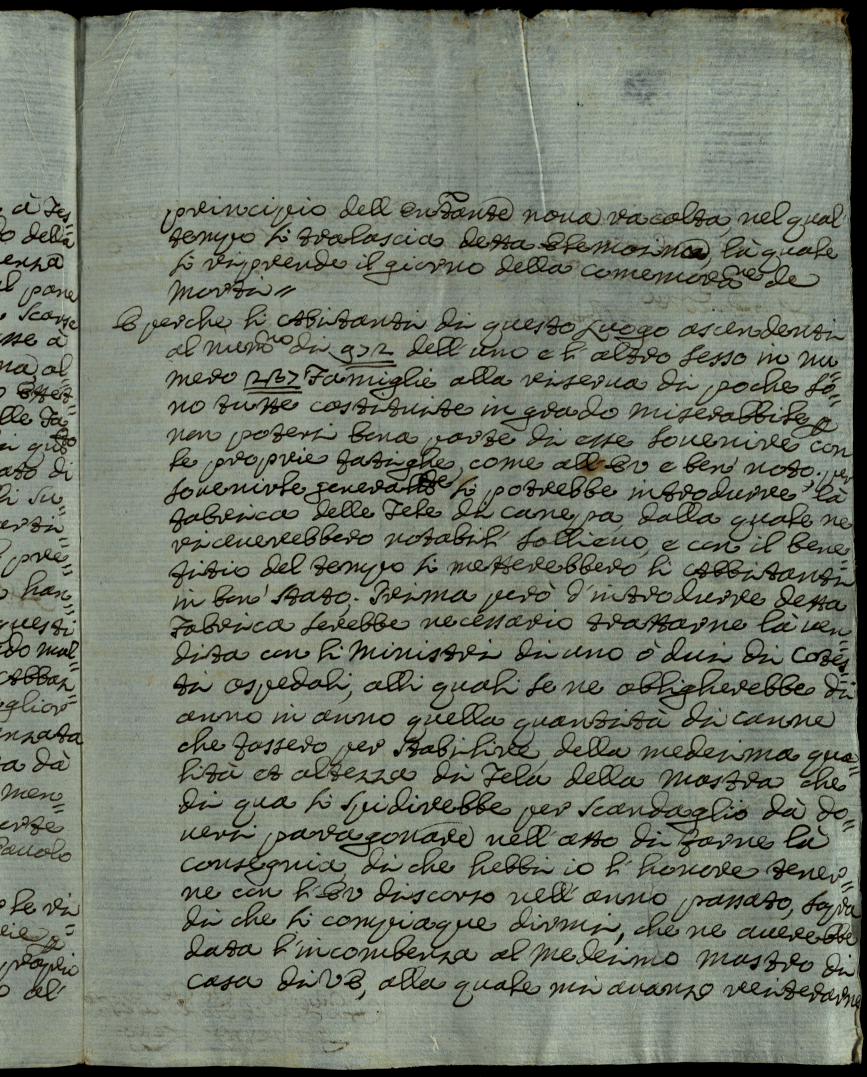 principio dell'entrante nova racolta, nel qual
tempo si tralascia detta Elemosina, la quale
si riprende il giorno della comemorãne de
morti//
E perche li Abitanti di questo Luogo ascendenti
al numº di 972 dell'uno e l'altro sesso in nu=
mero 237 Famiglie alla riserva di poche so=
no tutte costituite in grado miserabbile p
non potersi bona parte di esse sovenire con
le proprie fatighe, come all'EV e ben noto, per
sovenirle generalmte si potrebbe introdurre la
fabrica delle Tele di canepa, dalla quale ne
riceverebbero notabil' sollievo, e con il bene=
fitio del tempo si metterebbero li Abbitanti
in bon' stato. Prima però d'introdurre detta
Fabrica serebbe necessario trattarne la ven=
dita con li Ministri di uno ò dui di cotes=
ti ospedali, alli quali se ne obligherebbe di
anno in anno quella quantità di canne
che fossero per stabilire, della medesima qua=
lità et altezza di Tela della mostra che
di qua si spidirebbe per scandaglio dà do=
versi paragonare nell'atto di farne la
consegnia, di che hebbi io l'honore tener=
ne con l'EV discorso nell'anno passato, sopra
di che si compiaque dirmi, che ne averebbe
data l'incombenza al medesimo mastro di
casa di VE, alla quale mi avanzo reiterarne
à Tes=
o della
enza
l pane
Scarse
sse à
ma al
lle Fa=
i questo
ato di
li su
arti
pre=
han=
questi
do mal=
Abban=
gliori
a dà
men=
Paolo
le ri=
proprio
o al'